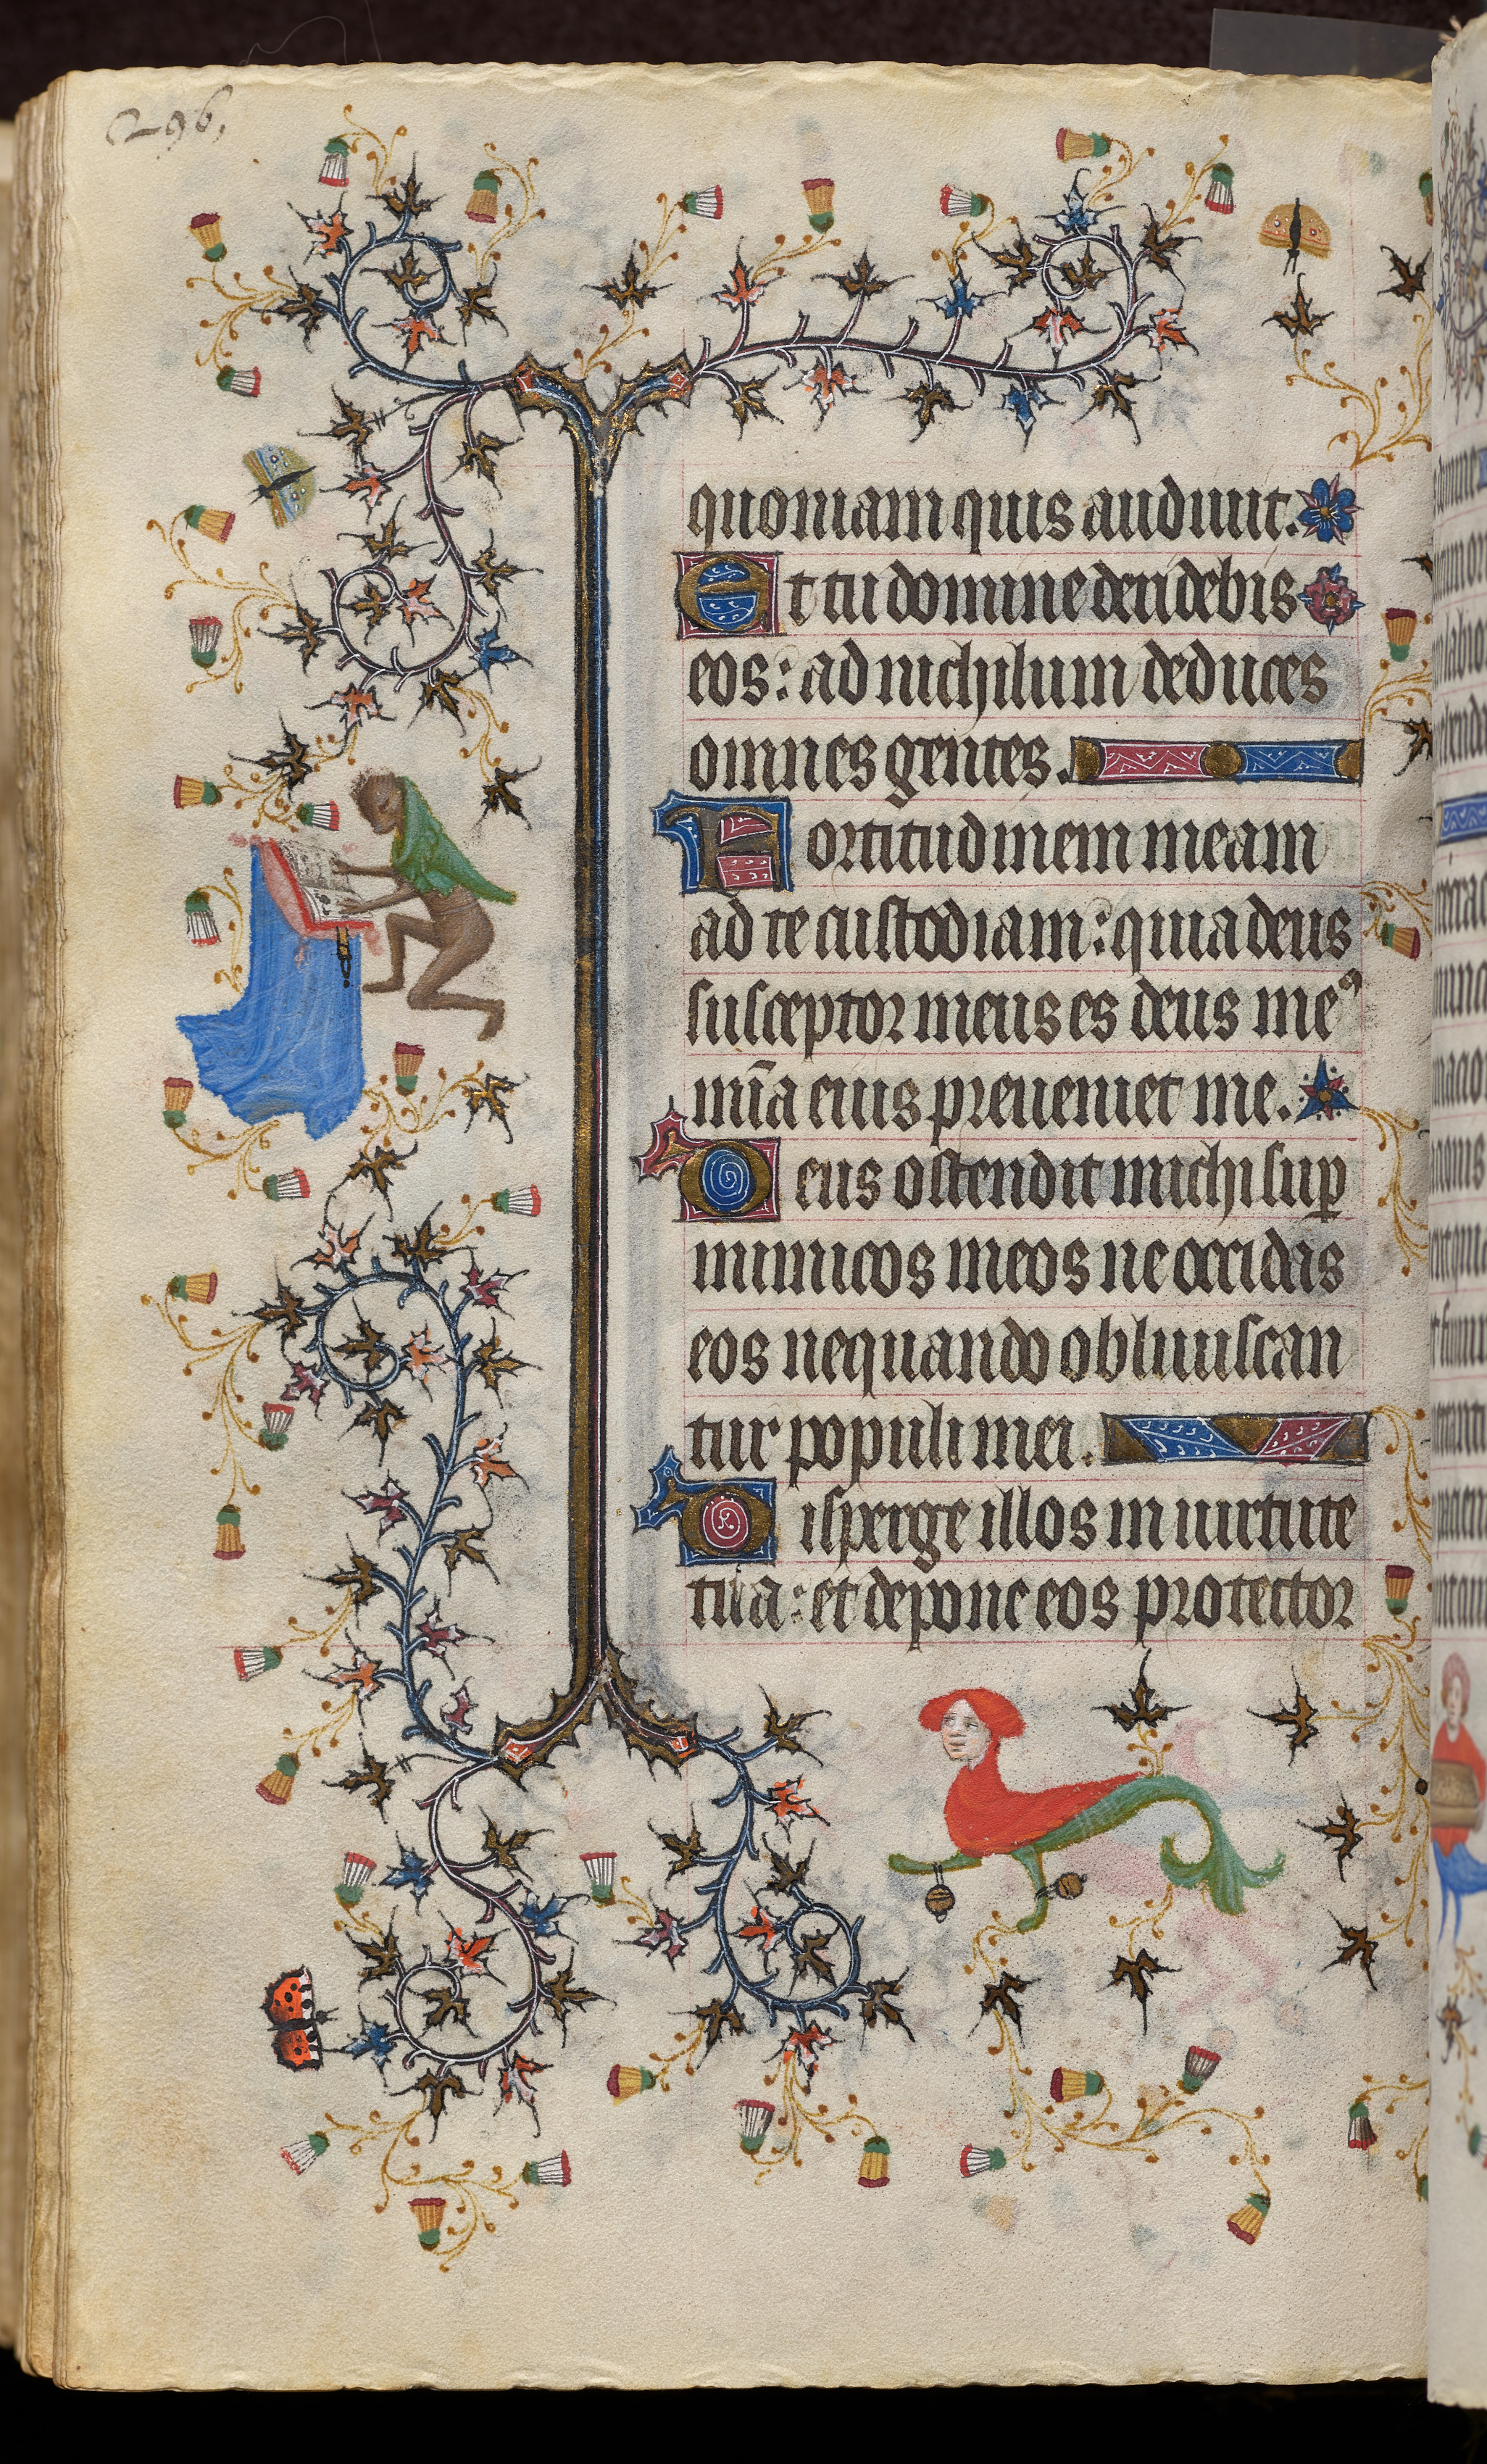 296,
quoniam quis audiuit.
Et tu domine deridebis
eos: ad nichilum deduces
omnes gentes.
Fortitudinem meam
ad te custodiam: quia deus
susceptor meus es deus meꝰ
mīa eius preueniet me.
Deus ostendit michi suꝑ
inimicos meos ne occidas
eos nequando obliuiscan
tur populi mei.
Disperge illos in uirtute
tua: et depone eos protector